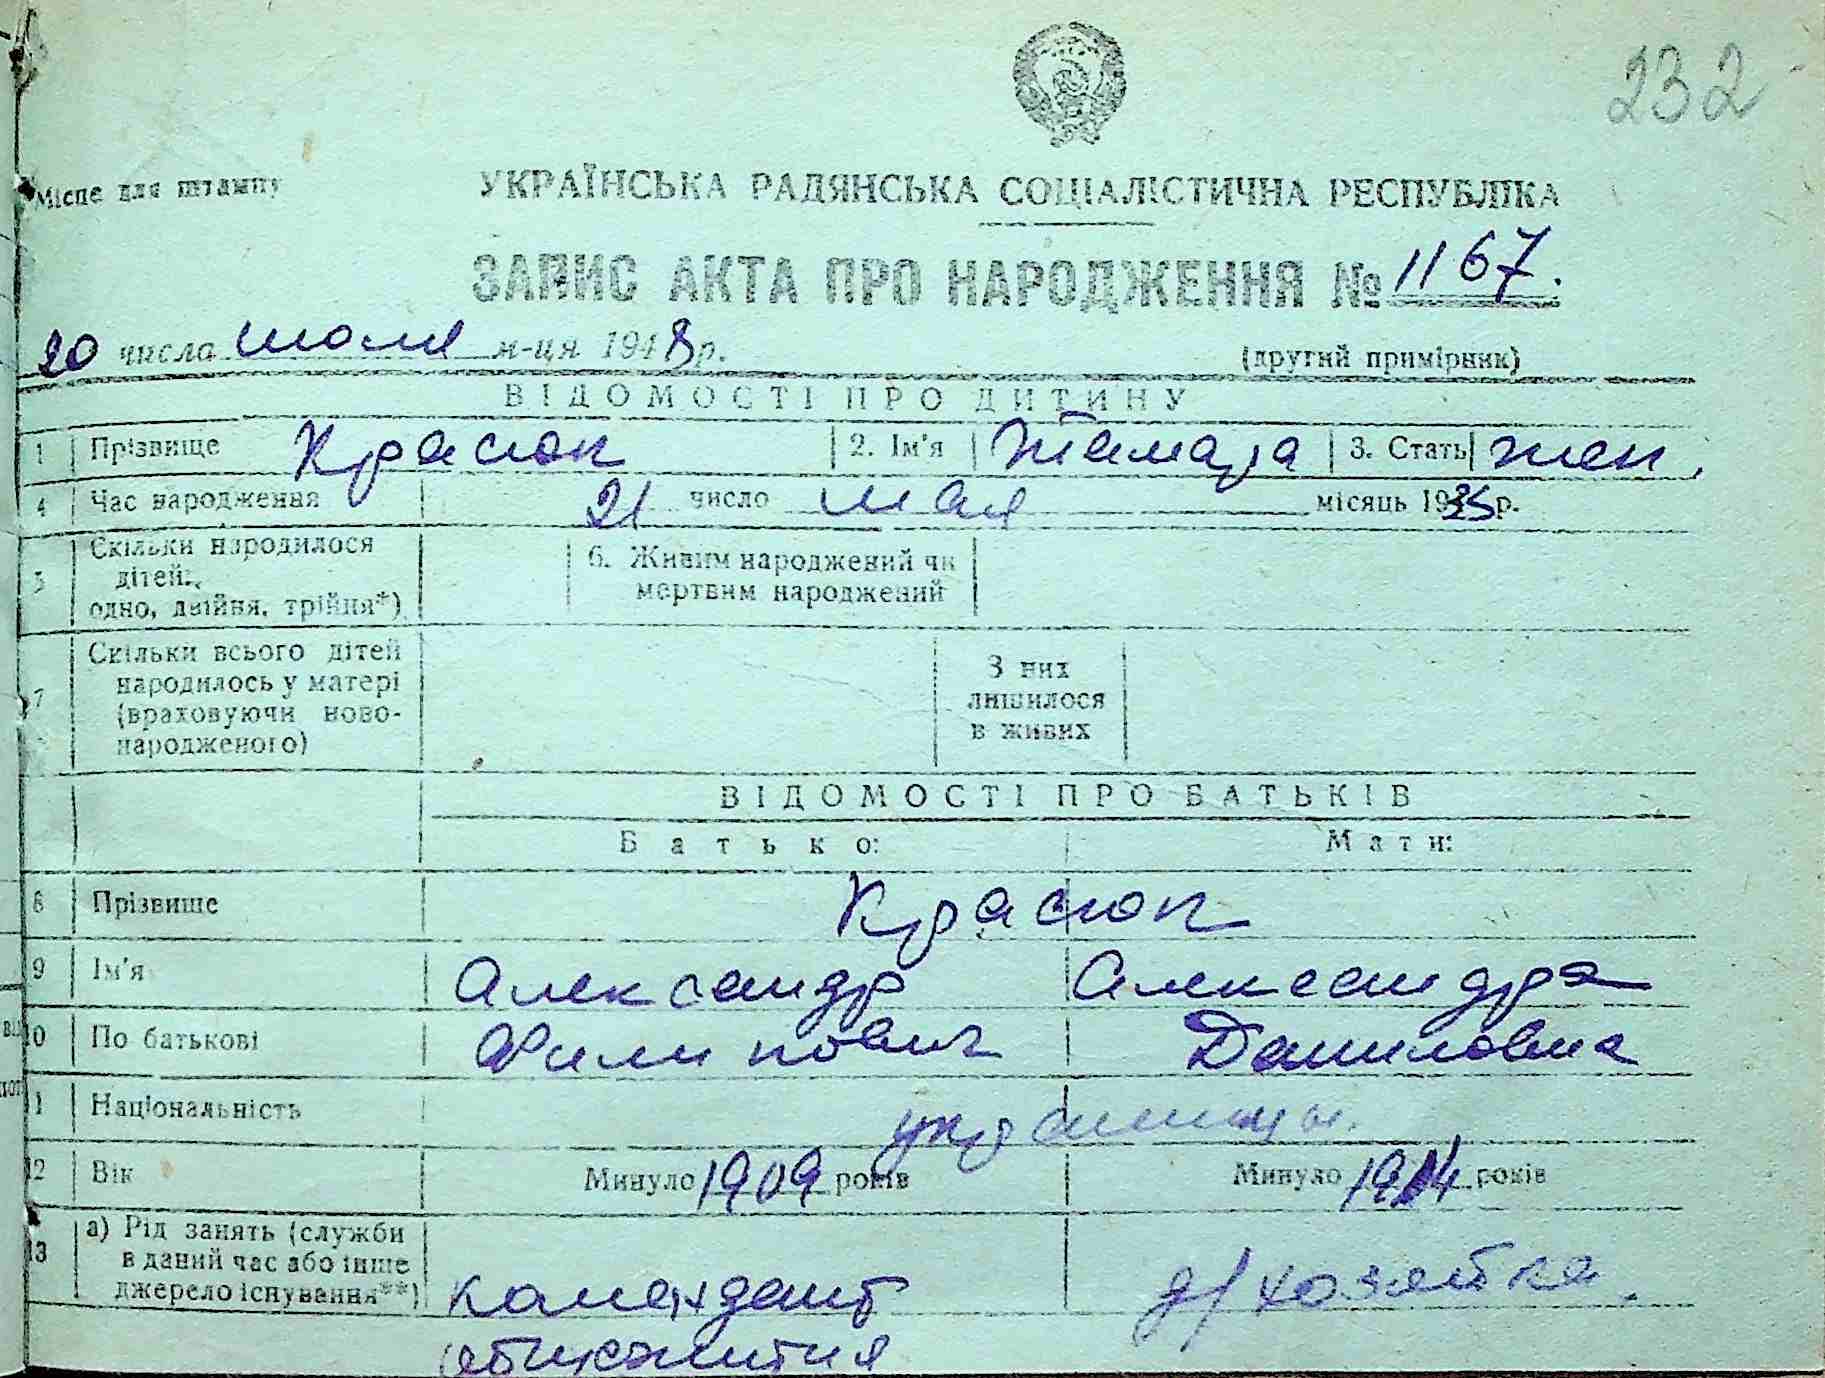 232
Місце для штампу
УКРАЇНСЬКА РАДЯНСЬКА СОЦІАЛІСТИЧНА РЕСПУБЛІКА
ЗАПИС АКТА ПРО НАРОДЖЕННЯ № 1167.
20 числа июля м-ця 1948 р.
(другий примірник)
ВІДОМОСТІ ПРО ДИТИНУ
1 Прізвище Красюк 2. Ім'я Тамара 3. Стать жен.
4 Час народження 21 число мая місяць 1935 р.
5 Скільки народилося дітей: одно, двійня, трійня*)
6. Живим народжений чи мертвим народжений
7 Скільки всього дітей народилось у матері (враховуючи новонародженого)
З них лишилося в живих
ВІДОМОСТІ ПРО БАТЬКІВ
Батько: Мати:
8 Прізвище Красюк
9 Ім'я Александр Александра
10 По батькові Филипович Даниловна
11 Національність украинцы.
12 Вік Минуло 1909 років Минуло 1914 років
13 а) Рід занять (служби в даний час або інше джерело існування**)
комендант общежития д/хозяйка.